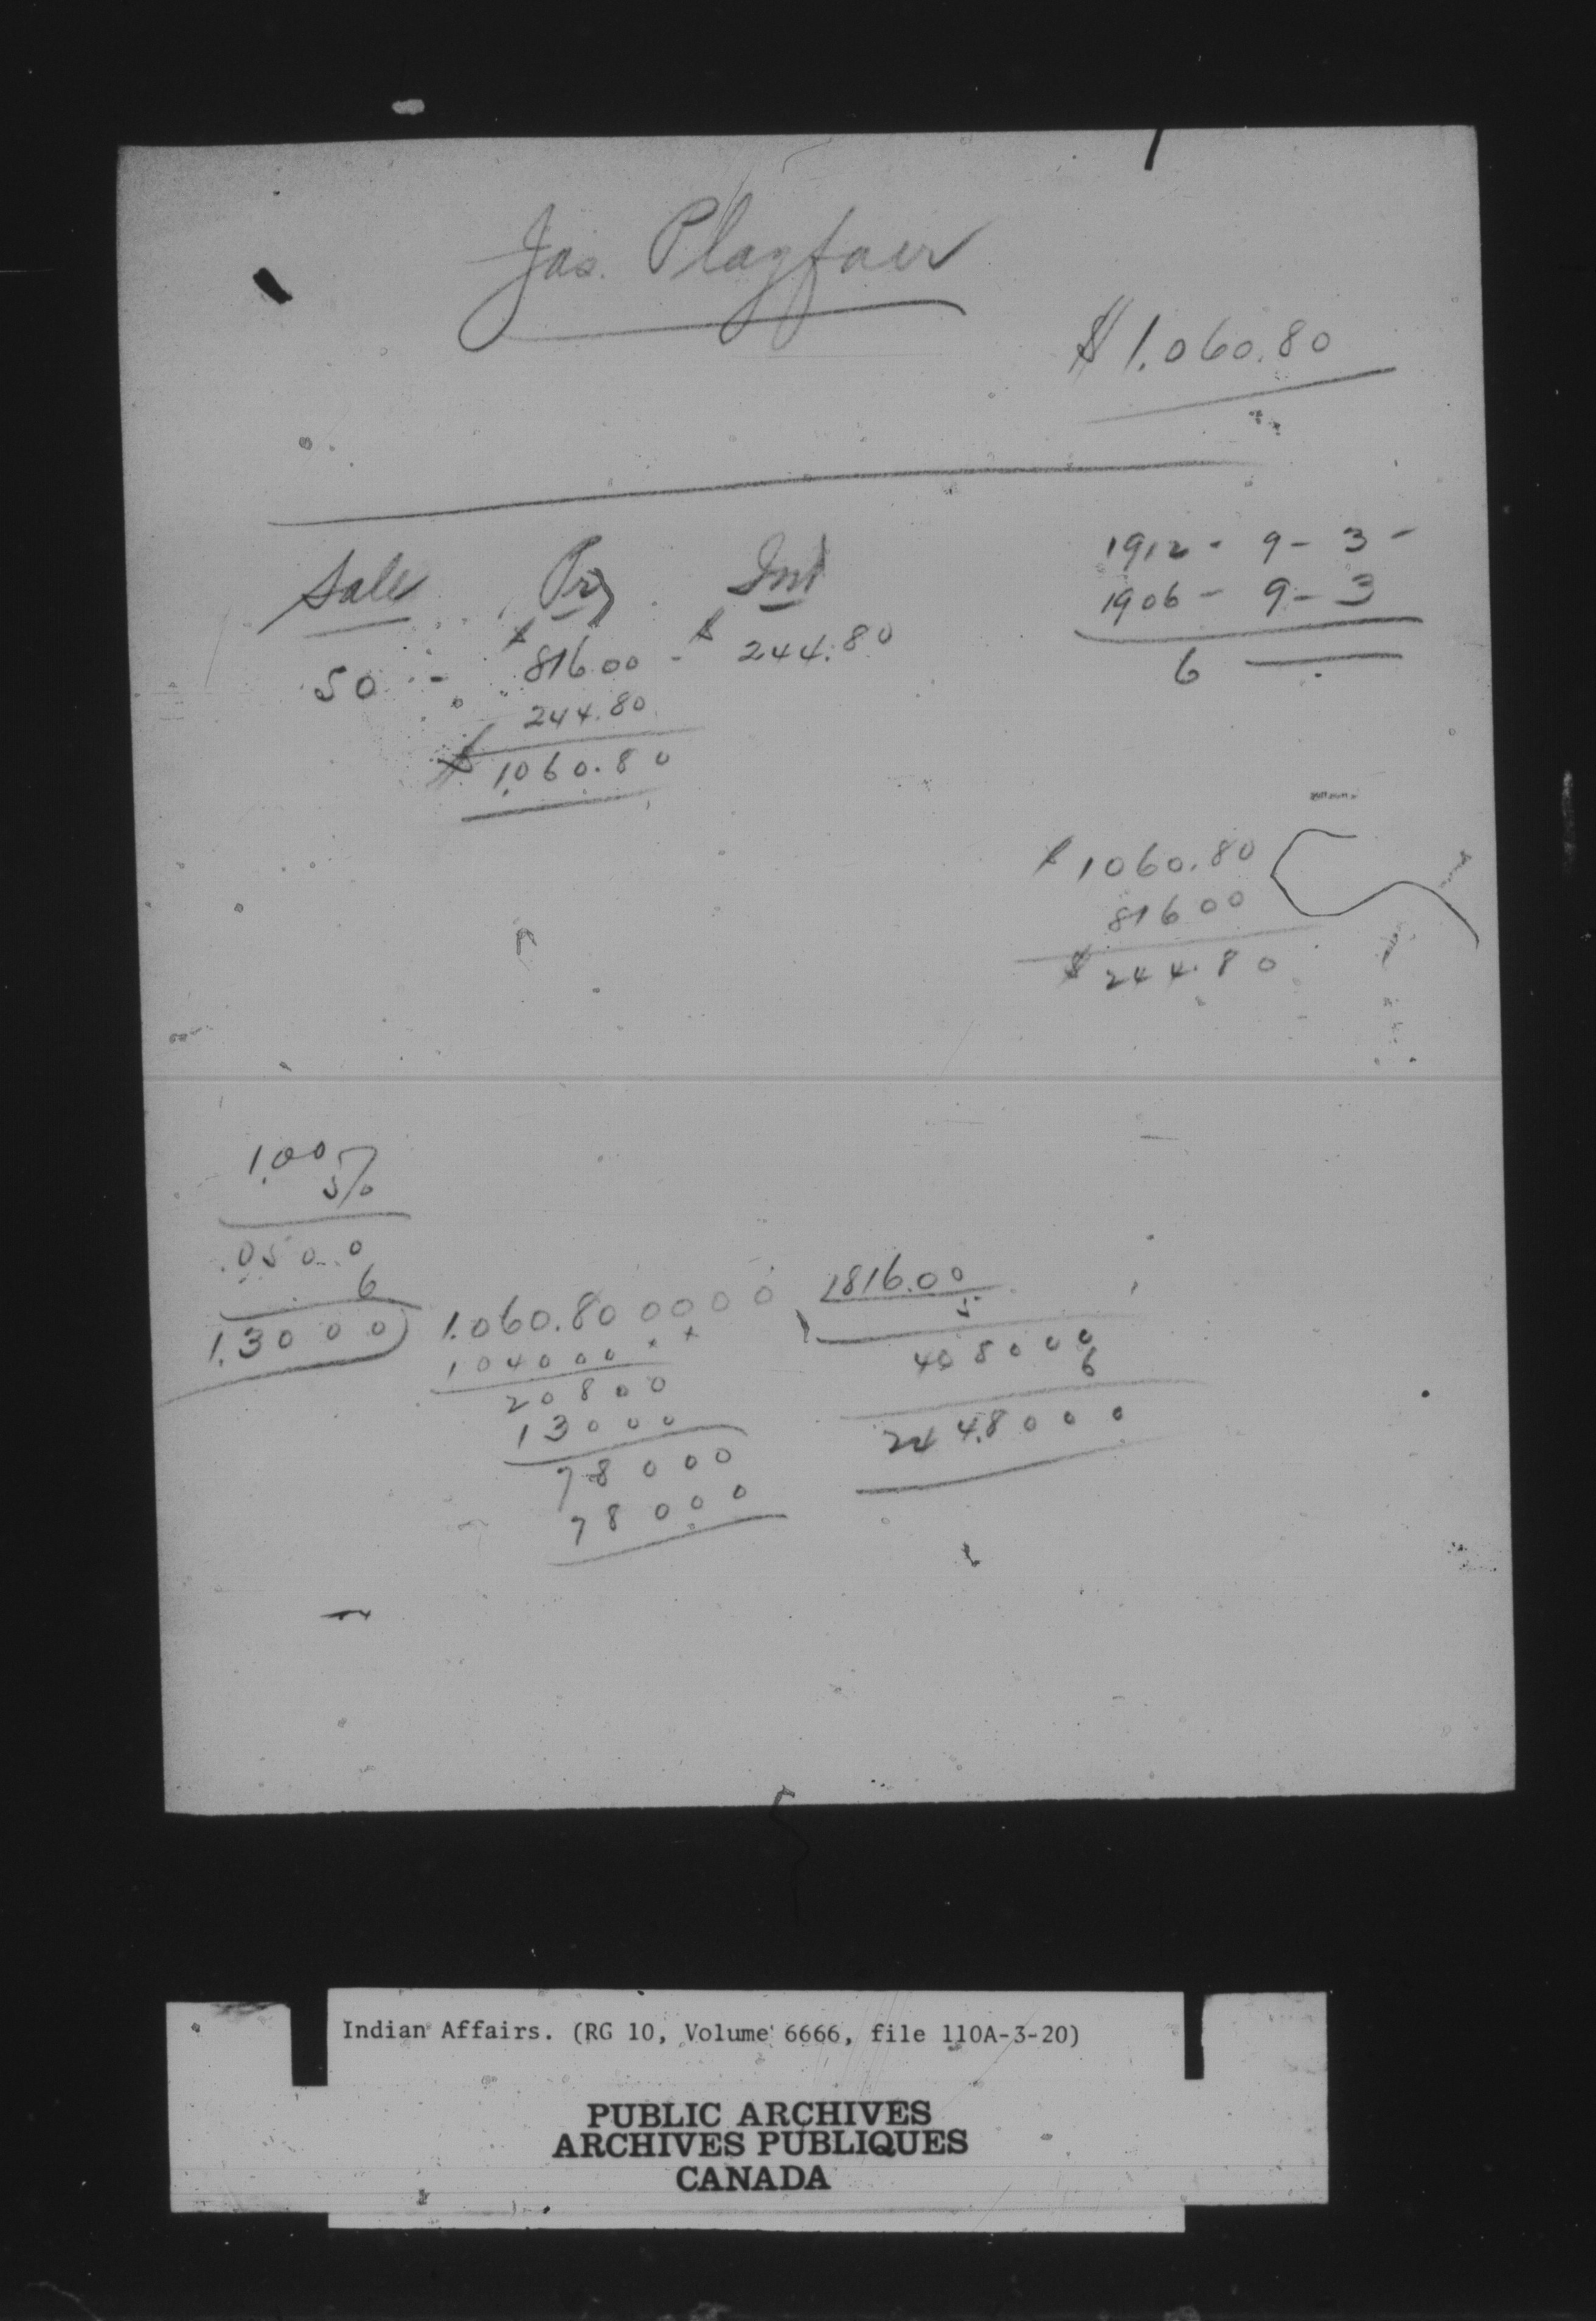 Jas. Playfair
$1,060.80
Sale Pr Int
50 - $816.00 - $244.80
244.80
$1,060.80
1912 - 9 - 3 -
1906 - 9 - 3
6 —
$1060.80
81600
$244.80
1.00
5%
.0500
6
1.3000) 1.060.800000 (816.00
104000
20800
13000
78000
78000
5
408000
6
244.8000
Indian Affairs. (RG 10, Volume 6666, file 110A-3-20)
PUBLIC ARCHIVES
ARCHIVES PUBLIQUES
CANADA